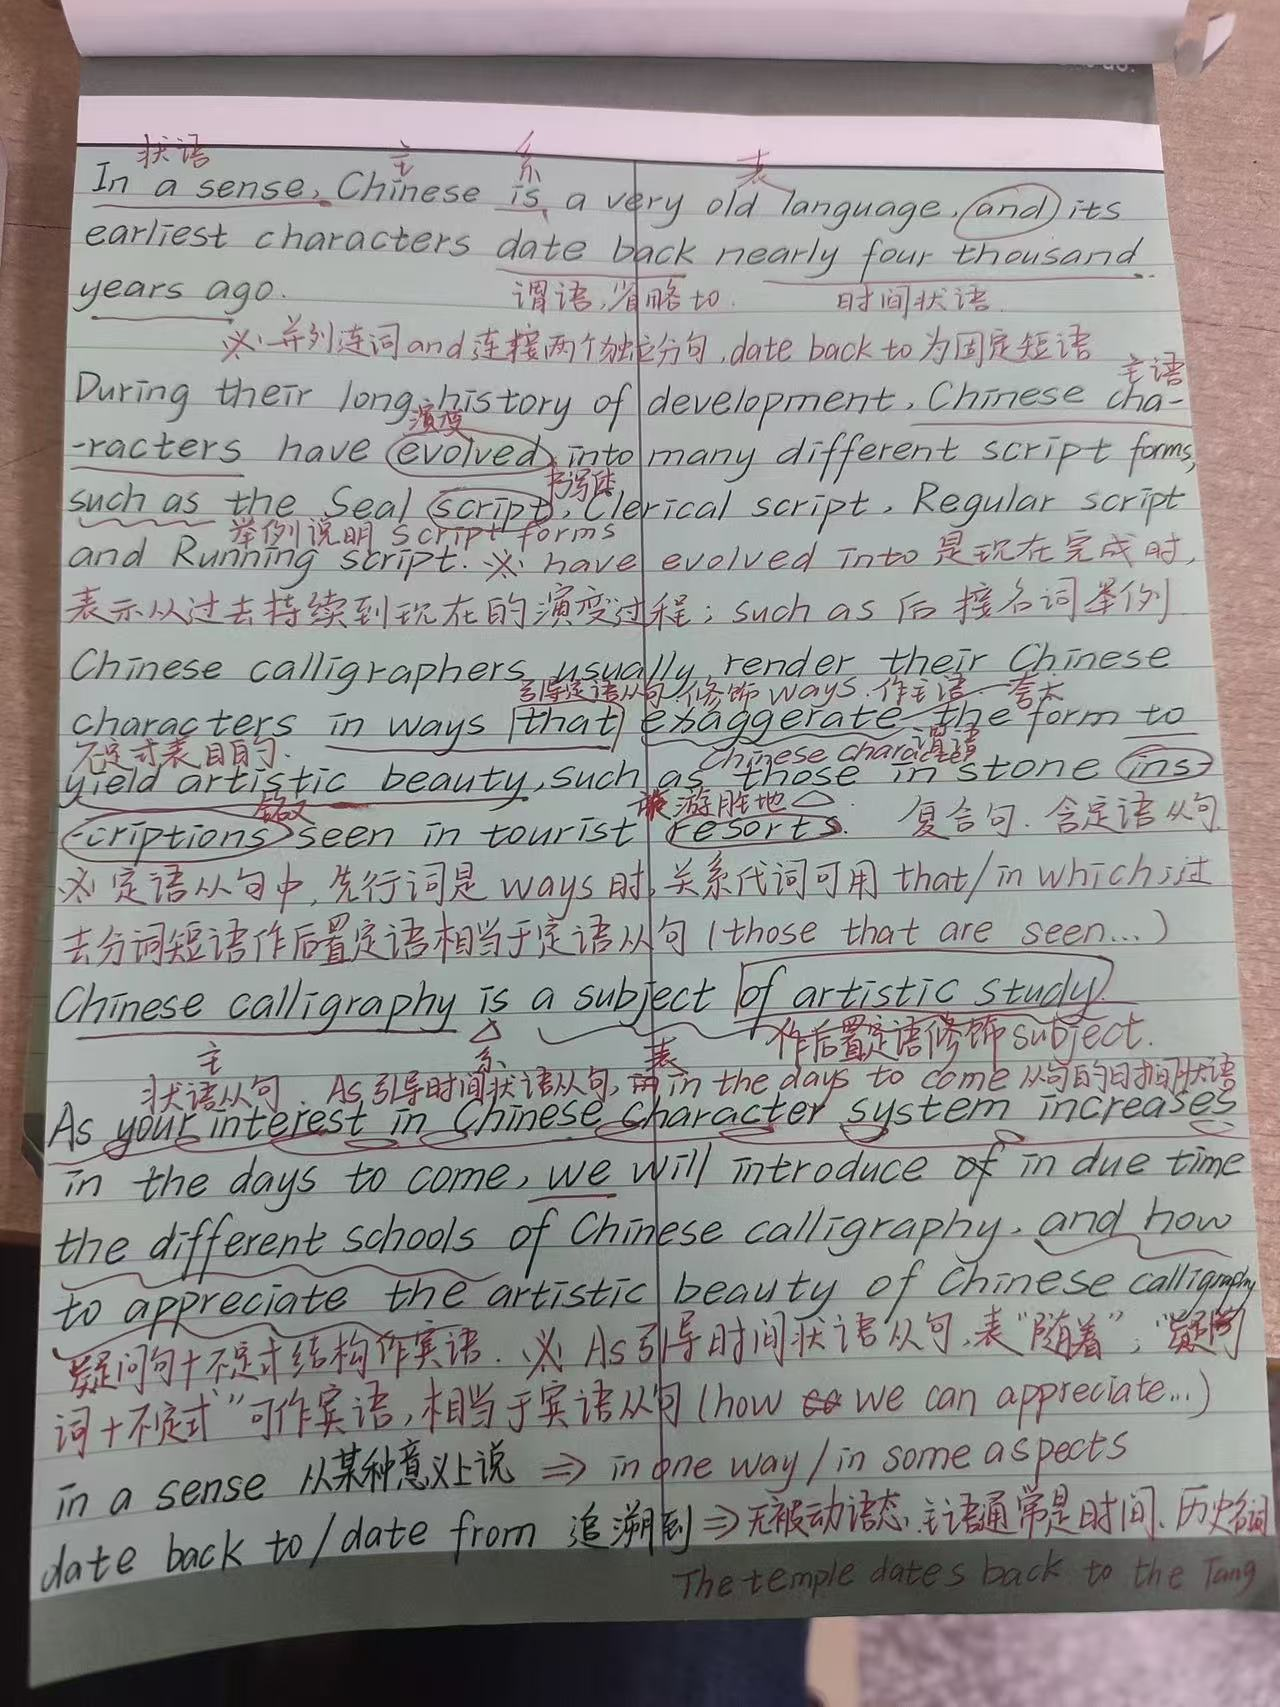 状语 主 系 表
In a sense, Chinese is a very old language, and its
earliest characters date back nearly four thousand
years ago.
谓语,省略to. 时间状语.
※ 并列连词and连接两个独立分句,date back to为固定短语
主语
During their long history of development, Chinese cha-
演变
-racters have evolved into many different script forms,
书写体
such as the Seal script, Clerical script, Regular script
举例说明 script forms
and Running script. ※ have evolved into 是现在完成时,
表示从过去持续到现在的演变过程; such as 后接名词举例
Chinese calligraphers usually render their Chinese
引导定语从句.修饰ways.作主语. 夸大
characters in ways that exaggerate the form to
不定式表目的. Chinese character 谓语
yield artistic beauty, such as those in stone ins-
铭文 旅游胜地
-criptions seen in tourist resorts. 复合句.含定语从句
※ 定语从句中,先行词是ways时,关系代词可用that/in which;过
去分词短语作后置定语相当于定语从句(those that are seen...)
Chinese calligraphy is a subject of artistic study.
主 系 表 作后置定语修饰subject.
状语从句. As引导时间状语从句, in the days to come 从句的时间状语
As your interest in Chinese character system increases
in the days to come, we will introduce of in due time
the different schools of Chinese calligraphy, and how
to appreciate the artistic beauty of Chinese calligraphy
疑问句+不定式结构作宾语. ※ As引导时间状语从句,表“随着”; “疑问
词+不定式”可作宾语,相当于宾语从句(how we can appreciate...)
in a sense 从某种意义上说 ⇒ in one way/in some aspects
date back to/date from 追溯到⇒无被动语态,主语通常是时间、历史名词
The temple dates back to the Tang